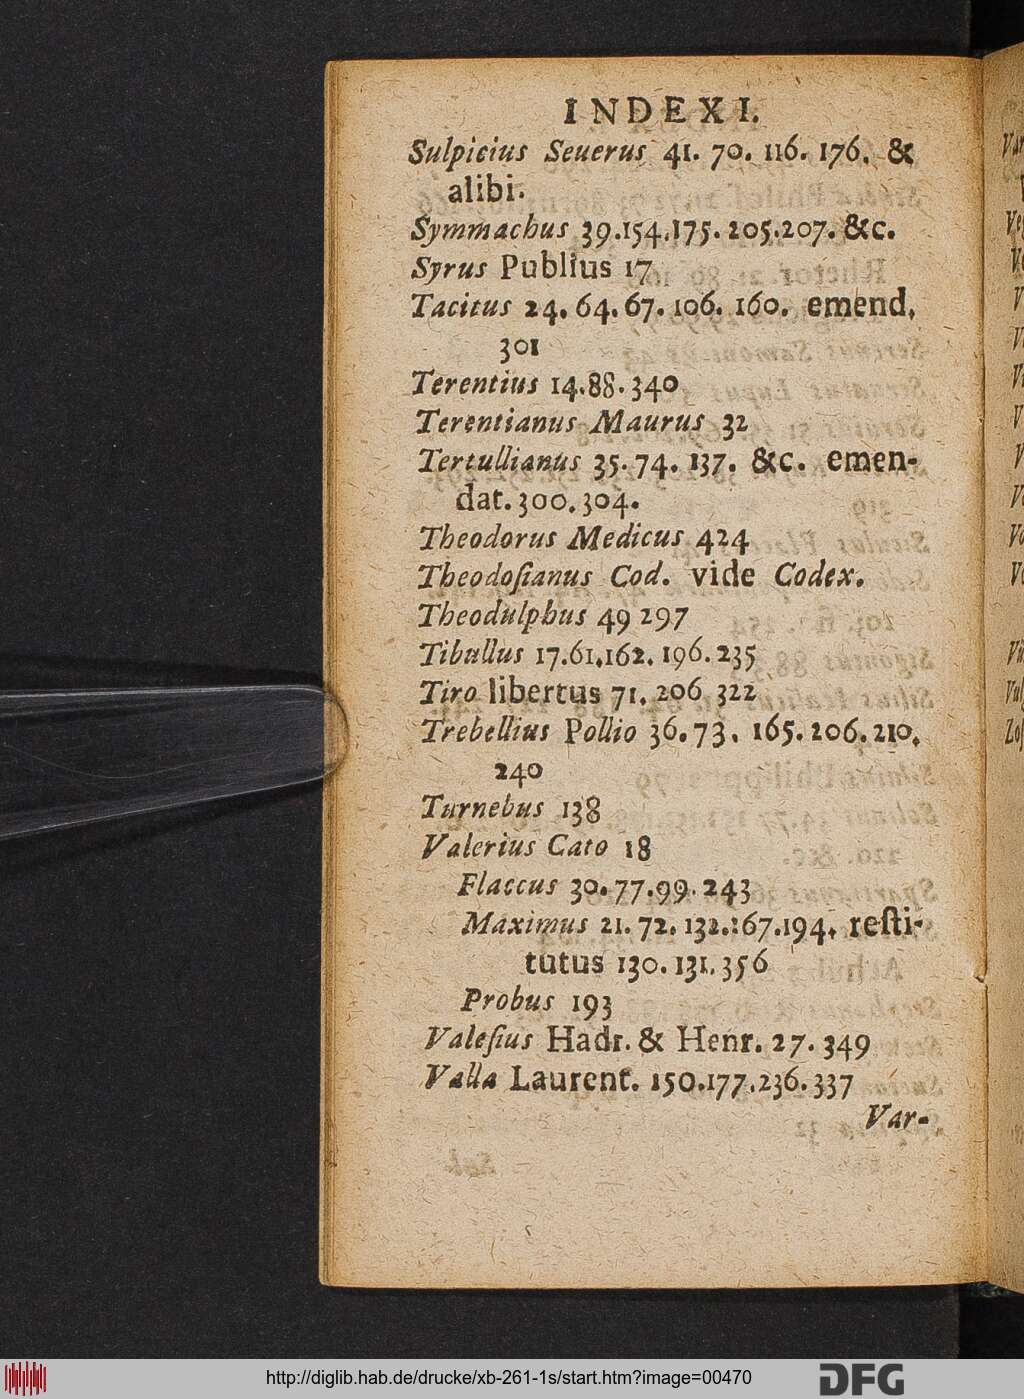 INDEX I.
Sulpicius Seuerus 41. 70. 116. 176. &
alibi.
Symmachus 39.154.175. 205.207. &c.
Syrus Publius 17
Tacitus 24. 64. 67. 106. 160. emend.
301
Terentius 14.88.340
Terentianus Maurus 32
Tertullianus 35.74. 137. &c. emen-
dat. 300.304.
Theodorus Medicus 424
Theodoſianus Cod. vide Codex.
Theodulphus 49 297
Tibullus 17.61.162. 196.235
Tiro libertus 71. 206 322
Trebellius Pollio 36.73. 165.206.210.
240
Turnebus 138
Valerius Cato 18
Flaccus 30.77.99.243
Maximus 21. 72. 132.167.194. reſti-
tutus 130.131.356
Probus 193
Valeſius Hadr. & Henr. 27. 349
Valla Laurent. 150.177.236.337
Var-
http://diglib.hab.de/drucke/xb-261-1s/start.htm?image=00470
DFG